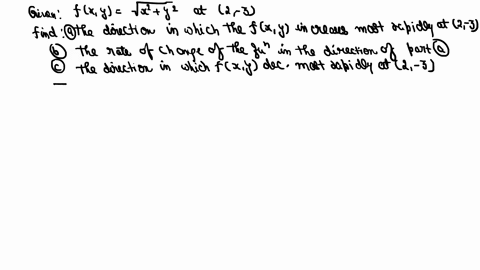 Given: f(x,y) = √x²+y² at (2,-3)
find: ⓐ the direction in which the f(x,y) increases most rapidly at (2,-3)
ⓑ the rate of change of the fuⁿ in the direction of part ⓐ
ⓒ the direction in which f(x,y) dec. most rapidly at (2,-3)